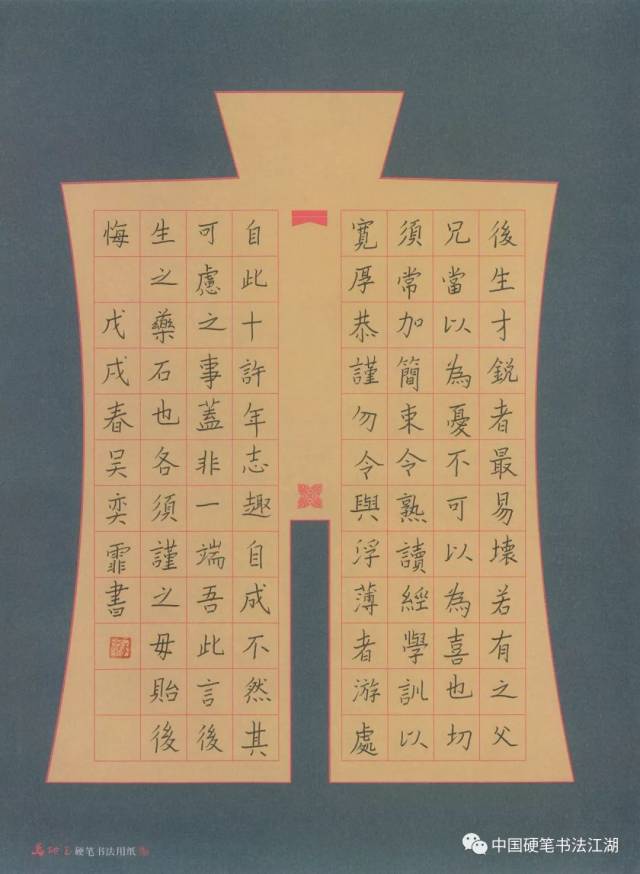 後生才銳者最易壞若有之父
兄當以為憂不可以為喜也切
須常加簡束令熟讀經學訓以
寬厚恭謹勿令與浮薄者游處
自此十許年志趣自成不然其
可慮之事蓋非一端吾此言後
生之藥石也各須謹之毋貽後
悔
戊戌春吴奕霏書
硬笔书法用纸
中国硬笔书法江湖